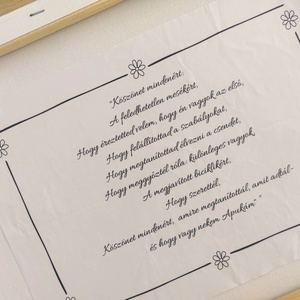 "Köszönet mindenért.
A feledhetetlen mesékért,
Hogy éreztetted velem, hogy én vagyok az első,
Hogy felállítottad a szabályokat,
Hogy megtanítottad élvezni a csendet,
Hogy meggyőztél róla különleges vagyok,
A megjavított biciklikért,
Hogy szerettél,
Köszönet mindenért, amire megtanítottál, amit adtál-
és hogy vagy nekem Apukám"."